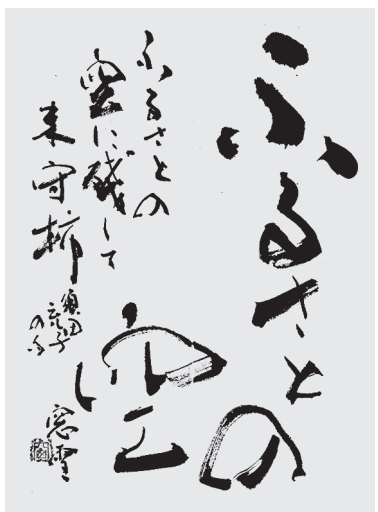 ふるさとの
空に
ふるさとの
空に残して
来守柿
の句
窓雪